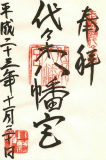 奉拝
代々木八幡宮
平成二十三年十月二十日